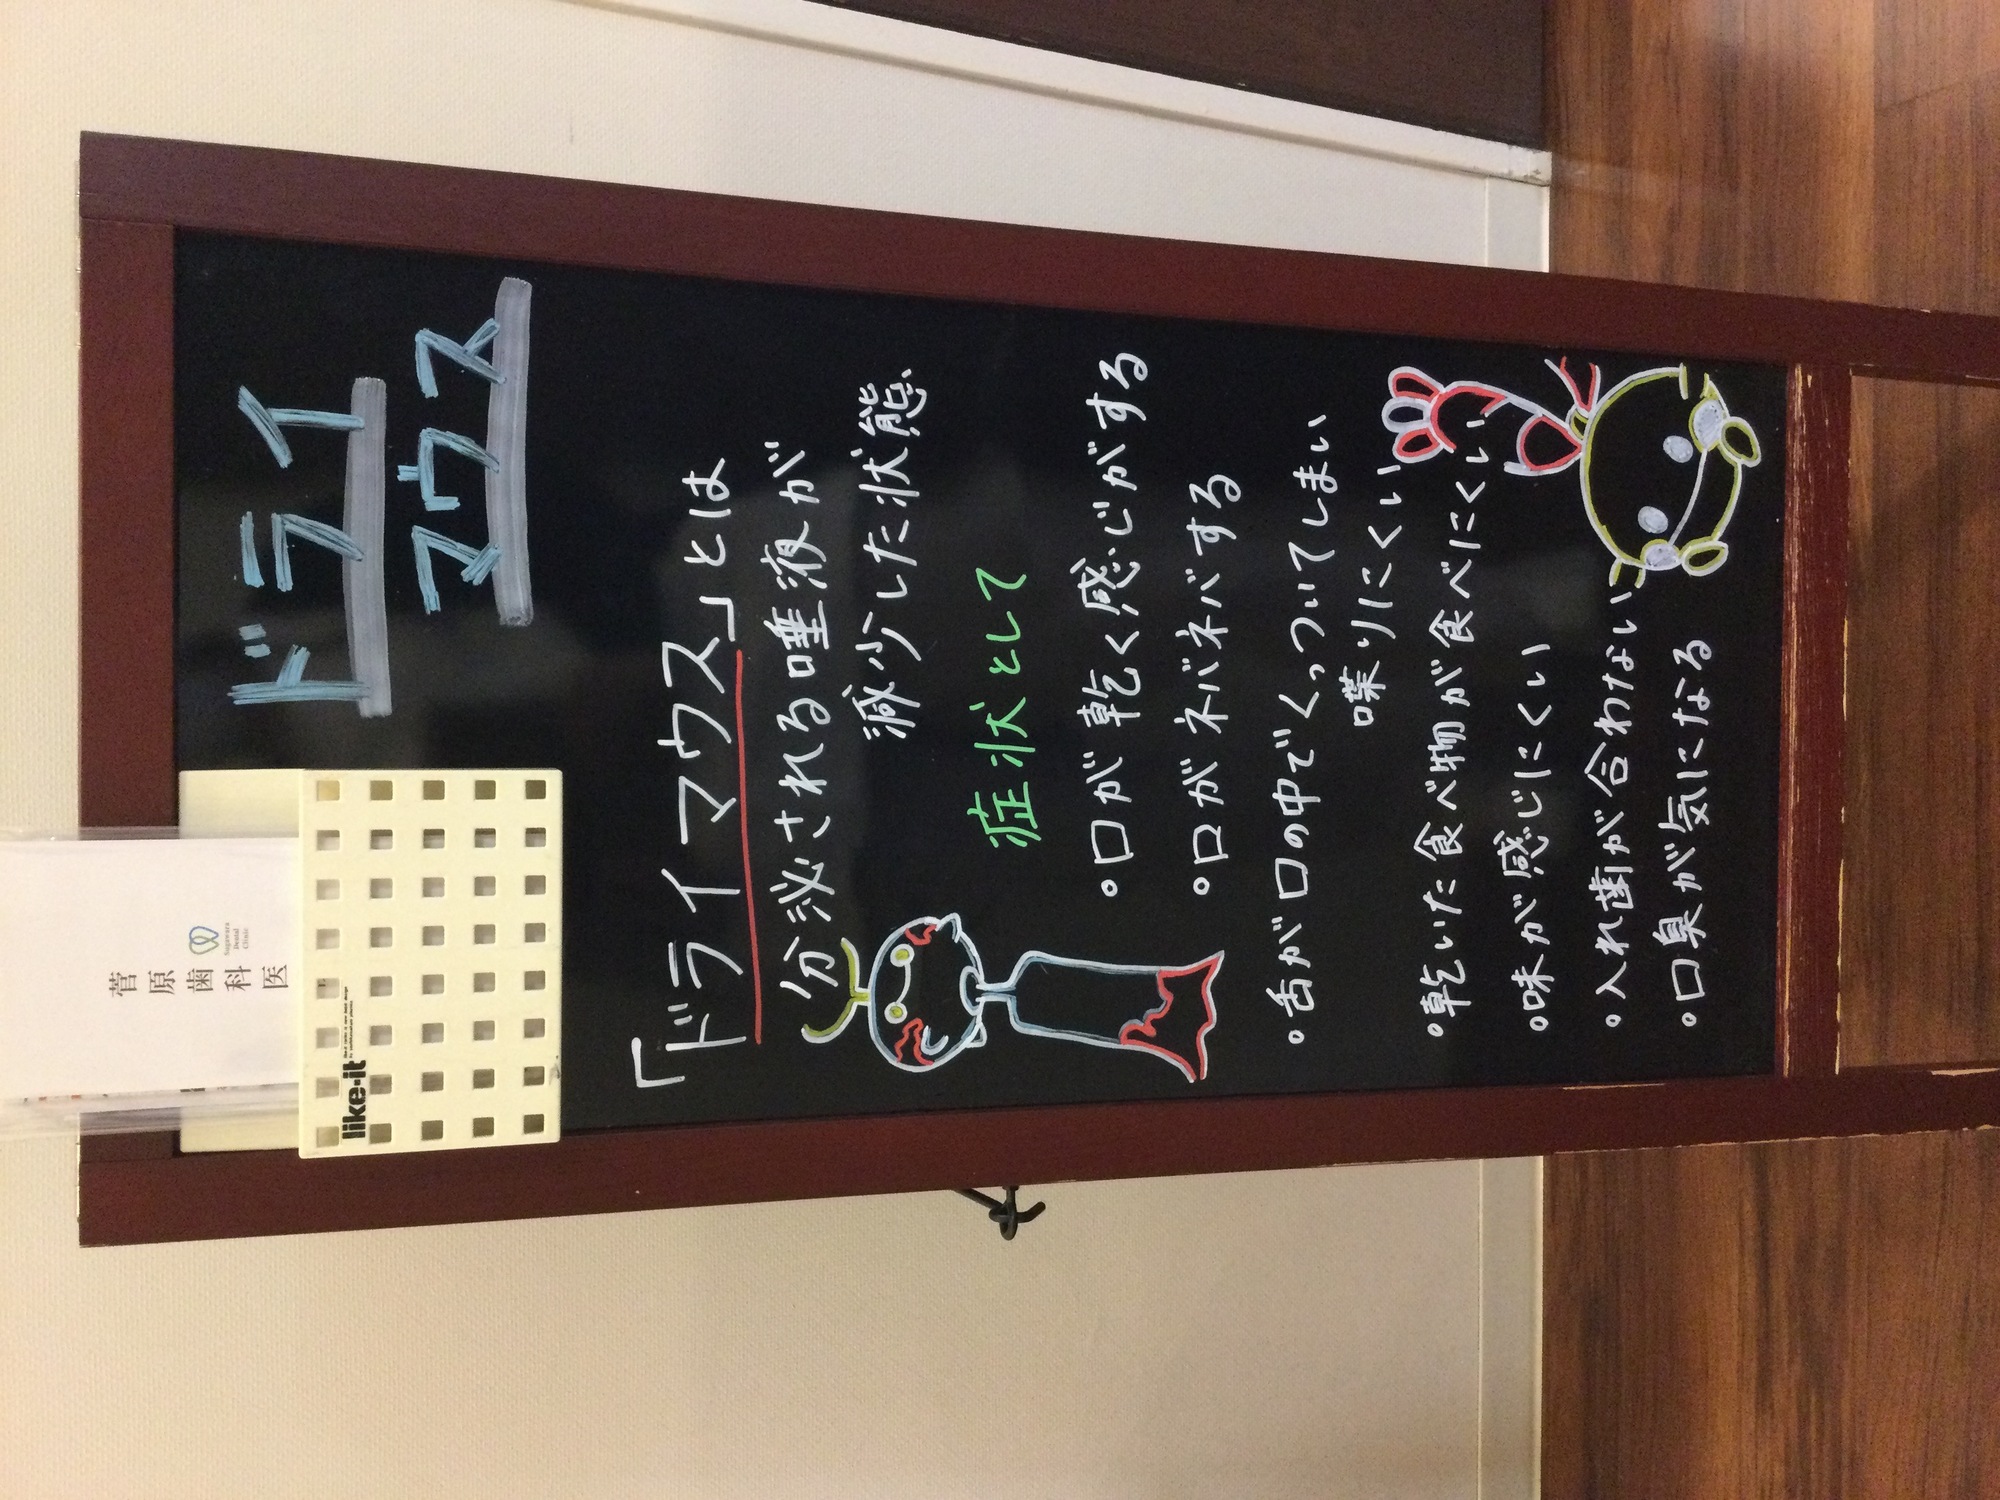 ドライ
マウス
菅原歯科医
Sugawara
Dental
Clinic
like-it
「ドライマウス」とは
分泌される唾液が
減少した状態
症状として
・口が乾く感じがする
・口がネバネバする
・舌が口の中でくっついてしまい
喋りにくい
・乾いた食べ物が食べにくい
・味が感じにくい
・入れ歯が合わない
・口臭が気になる